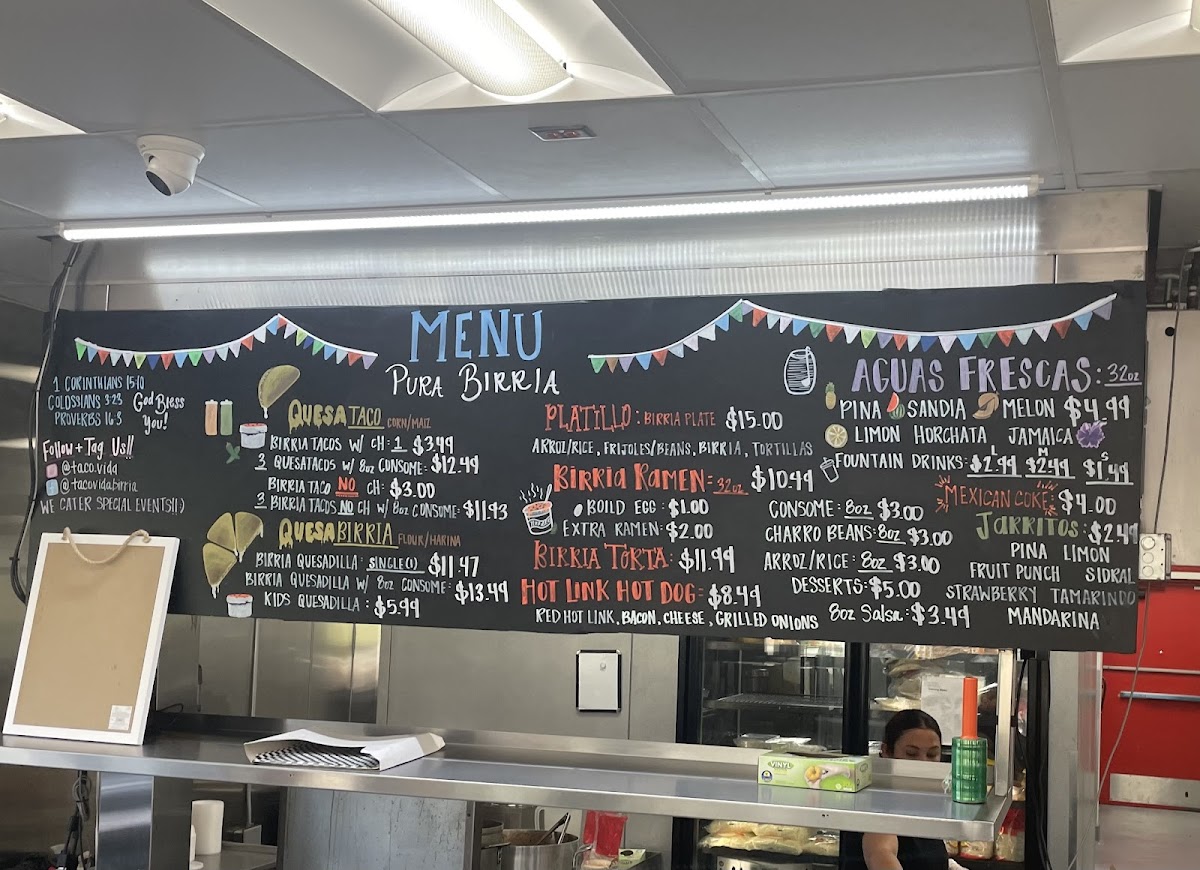 MENU
PURA BIRRIA
1 CORINTHIANS 15:10
COLOSSIANS 3:23
PROVERBS 16:3
God Bless
You!
Follow + Tag Us!!
@taco.vida
@tacovidabirria
WE CATER SPECIAL EVENTS!!:)
QUESATACO CORN/MAIZ
BIRRIA TACOS W/ CH: 1 $3.49
3 QUESATACOS W/ 8oz CONSOME: $12.49
BIRRIA TACO NO CH: $3.00
3 BIRRIA TACOS NO CH W/ 8oz CONSOME: $11.93
QUESABIRRIA FLOUR/HARINA
BIRRIA QUESADILLA: SINGLE(1) $11.47
BIRRIA QUESADILLA W/ 8oz CONSOME: $13.49
KIDS QUESADILLA: $5.99
PLATILLO: BIRRIA PLATE $15.00
ARROZ/RICE, FRIJOLES/BEANS, BIRRIA, TORTILLAS
BIRRIA RAMEN: 32oz $10.49
BOILD EGG: $1.00
EXTRA RAMEN: $2.00
BIRRIA TORTA: $11.99
HOT LINK HOT DOG: $8.49
RED HOT LINK, BACON, CHEESE, GRILLED ONIONS
AGUAS FRESCAS: 32oz
PINA SANDIA MELON $4.99
LIMON HORCHATA, JAMAICA
L M S
FOUNTAIN DRINKS: $2.99 $2.49 $1.49
CONSOME: 8oz $3.00
CHARRO BEANS: 8oz $3.00
ARROZ/RICE: 8oz $3.00
DESSERTS: $5.00
8oz Salsa: $3.49
MEXICAN COKE: $4.00
JARRITOS: $2.49
PINA LIMON
FRUIT PUNCH SIDRAL
STRAWBERRY TAMARINDO
MANDARINA
VINYL